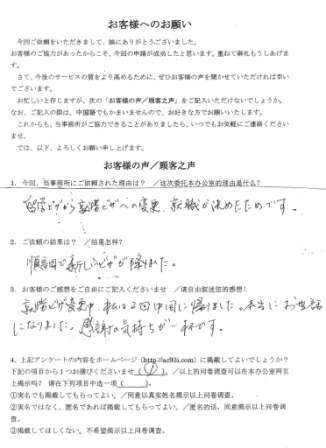 お客様へのお願い
今回ご依頼をいただきまして、誠にありがとうございました。
お客様のご協力があったからこそ、今回の申請が成功したと思います。重ねて御礼もうしあげます。
さて、今後のサービスの質をより高めるために、ぜひお客様の声を聞かせていただければ幸いでございます。
お忙しいと存じますが、次の「お客様の声／顧客之声」をご記入いただけないでしょうか。
なお、ご記入の際は、中国語でもかまいませんので、お好きな方でお願いいたします。
これからも、当事務所がご協力できることがありましたら、いつでもお気軽にご連絡くださいませ。
では、以下、よろしくお願い申し上げます。
お客様の声／顧客之声
1．今回、当事務所にご依頼された理由は？ ／这次委托本办公室的理由是什么?
留学ビザから就労ビザへの変更、就職が決めたためです。
2．ご依頼の結果は？ ／结果怎样?
順調で新しいビザが降りました。
3．お客様のご感想をご自由にご記入くださいませ ／请自由叙述您的感想!
ビザ変更中、私は2回中国に帰りました。本当にお世話
になりました。感謝の気持ちが一杯です。
4．上記アンケートの内容をホームページ（http://ac9l6.com）に掲載してよいでしょうか？
下記の項目から1つお選びくださいませ（①）。／以上的问卷调查可以在本办公室网页上揭示吗? 请在下列项目中选一项（ ）。
①実名でも掲載してもらってよい。／同意以真实姓名揭示以上问卷调查。
②実名ではなく、匿名であれば掲載してもらってもよい。／匿名的话，同意揭示以上问卷调查。
③掲載してほしくない。不希望揭示以上问卷调查。